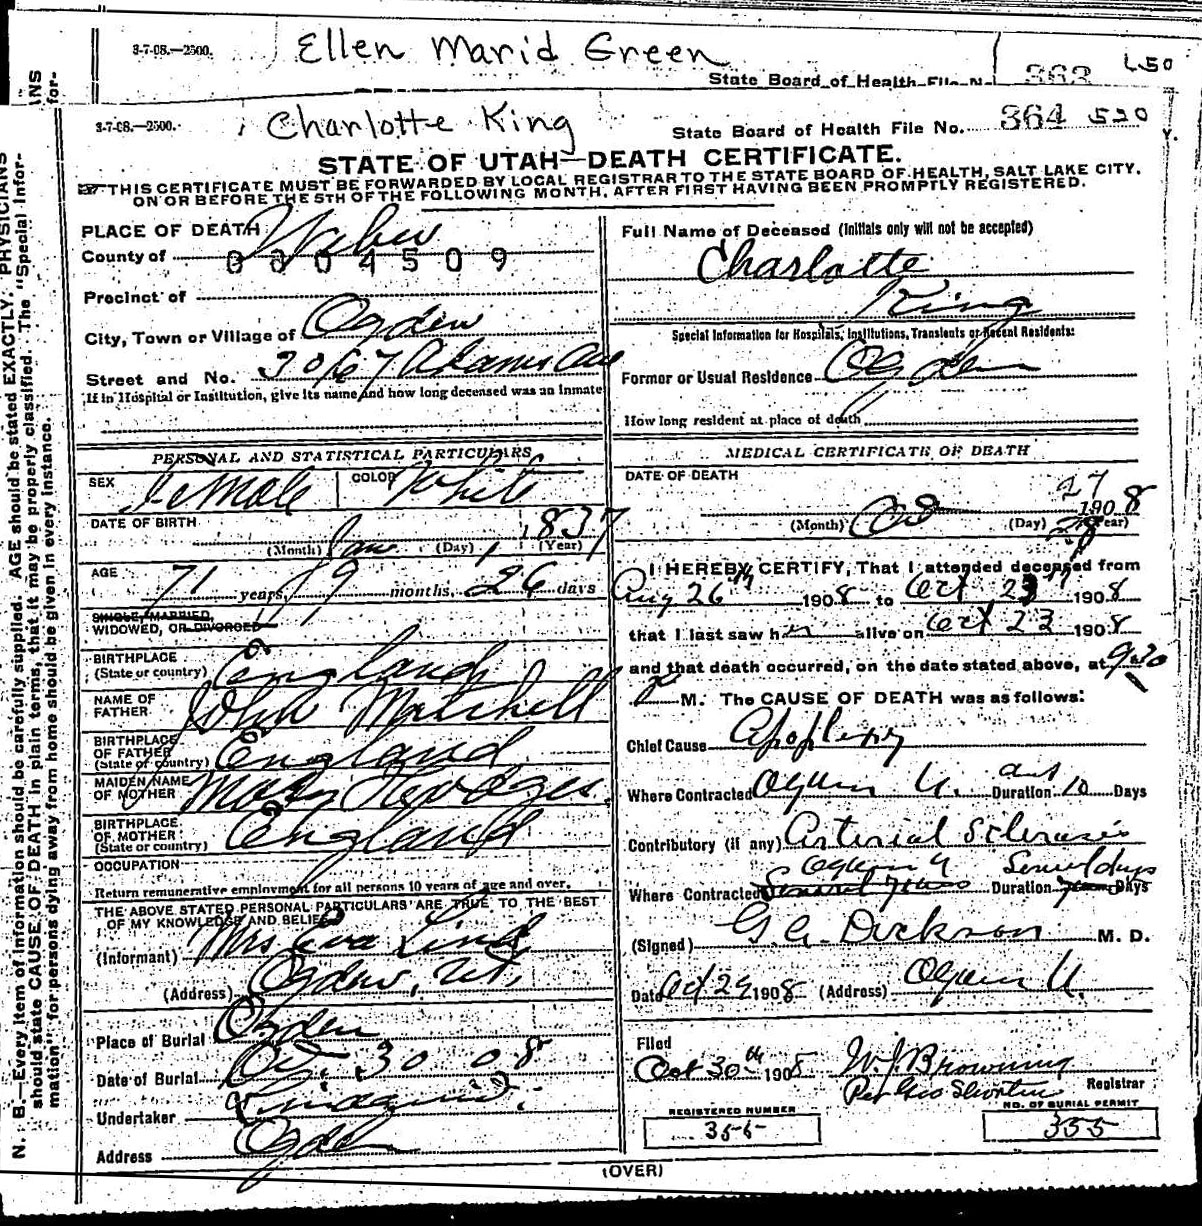 3-7-08.—2500.
Ellen Marid Green
State Board of Health File N
363
L50
3-7-08.—2500.
Charlotte King
State Board of Health File No. 364 520
STATE OF UTAH—DEATH CERTIFICATE.
THIS CERTIFICATE MUST BE FORWARDED BY LOCAL REGISTRAR TO THE STATE BOARD OF HEALTH, SALT LAKE CITY,
ON OR BEFORE THE 5TH OF THE FOLLOWING MONTH, AFTER FIRST HAVING BEEN PROMPTLY REGISTERED.
N. B.—Every item of information should be carefully supplied. AGE should be stated EXACTLY. PHYSICIANS
should state CAUSE OF DEATH in plain terms, that it may be properly classified. The "Special Infor-
mation" for persons dying away from home should be given in every instance.
PLACE OF DEATH
County of Weber
0004509
Precinct of
City, Town or Village of Ogden
Street and No. 3067 Adams Ave
If in Hospital or Institution, give its name and how long deceased was an inmate
PERSONAL AND STATISTICAL PARTICULARS
SEX Female COLOR White
DATE OF BIRTH
(Month) Jan (Day) 1 1837 (Year)
AGE
71 years, 9 months, 26 days
SINGLE, MARRIED,
WIDOWED, OR DIVORCED
BIRTHPLACE
(State or country) England
NAME OF
FATHER John Mitchell
BIRTHPLACE
OF FATHER
(State or country) England
MAIDEN NAME
OF MOTHER Mary Hedges
BIRTHPLACE
OF MOTHER
(State or country) England
OCCUPATION
Return remunerative employment for all persons 10 years of age and over.
THE ABOVE STATED PERSONAL PARTICULARS ARE TRUE TO THE BEST
OF MY KNOWLEDGE AND BELIEF
(Informant) Mrs Eva Lind
(Address) Ogden, Ut.
Place of Burial Ogden
Date of Burial Oct. 30 08
Undertaker Lindquist
Address Ogden
Full Name of Deceased (Initials only will not be accepted)
Charlotte
King
Special Information for Hospitals, Institutions, Transients or Recent Residents:
Former or Usual Residence Ogden
How long resident at place of death
MEDICAL CERTIFICATE OF DEATH
DATE OF DEATH
27
(Month) Oct (Day) 1908 (Year)
28
I HEREBY CERTIFY, That I attended deceased from
Aug 26th 1908 to Oct 23 1908
that I last saw her alive on Oct 23 1908
and that death occurred, on the date stated above, at 9:30
P M. The CAUSE OF DEATH was as follows:
Chief Cause Apoplexy
Where Contracted Ogden U. Duration 10 Days
Contributory (if any) Arterial Sclerosis
Ogden U
Where Contracted Duration Days
(Signed) Dickson M. D.
Date Oct 29 1908 (Address) Ogden U.
Filed
Oct 30th 1908 W. J. Browning
Per Geo Shorten Registrar
REGISTERED NUMBER
355
NO. OF BURIAL PERMIT
355
(OVER)